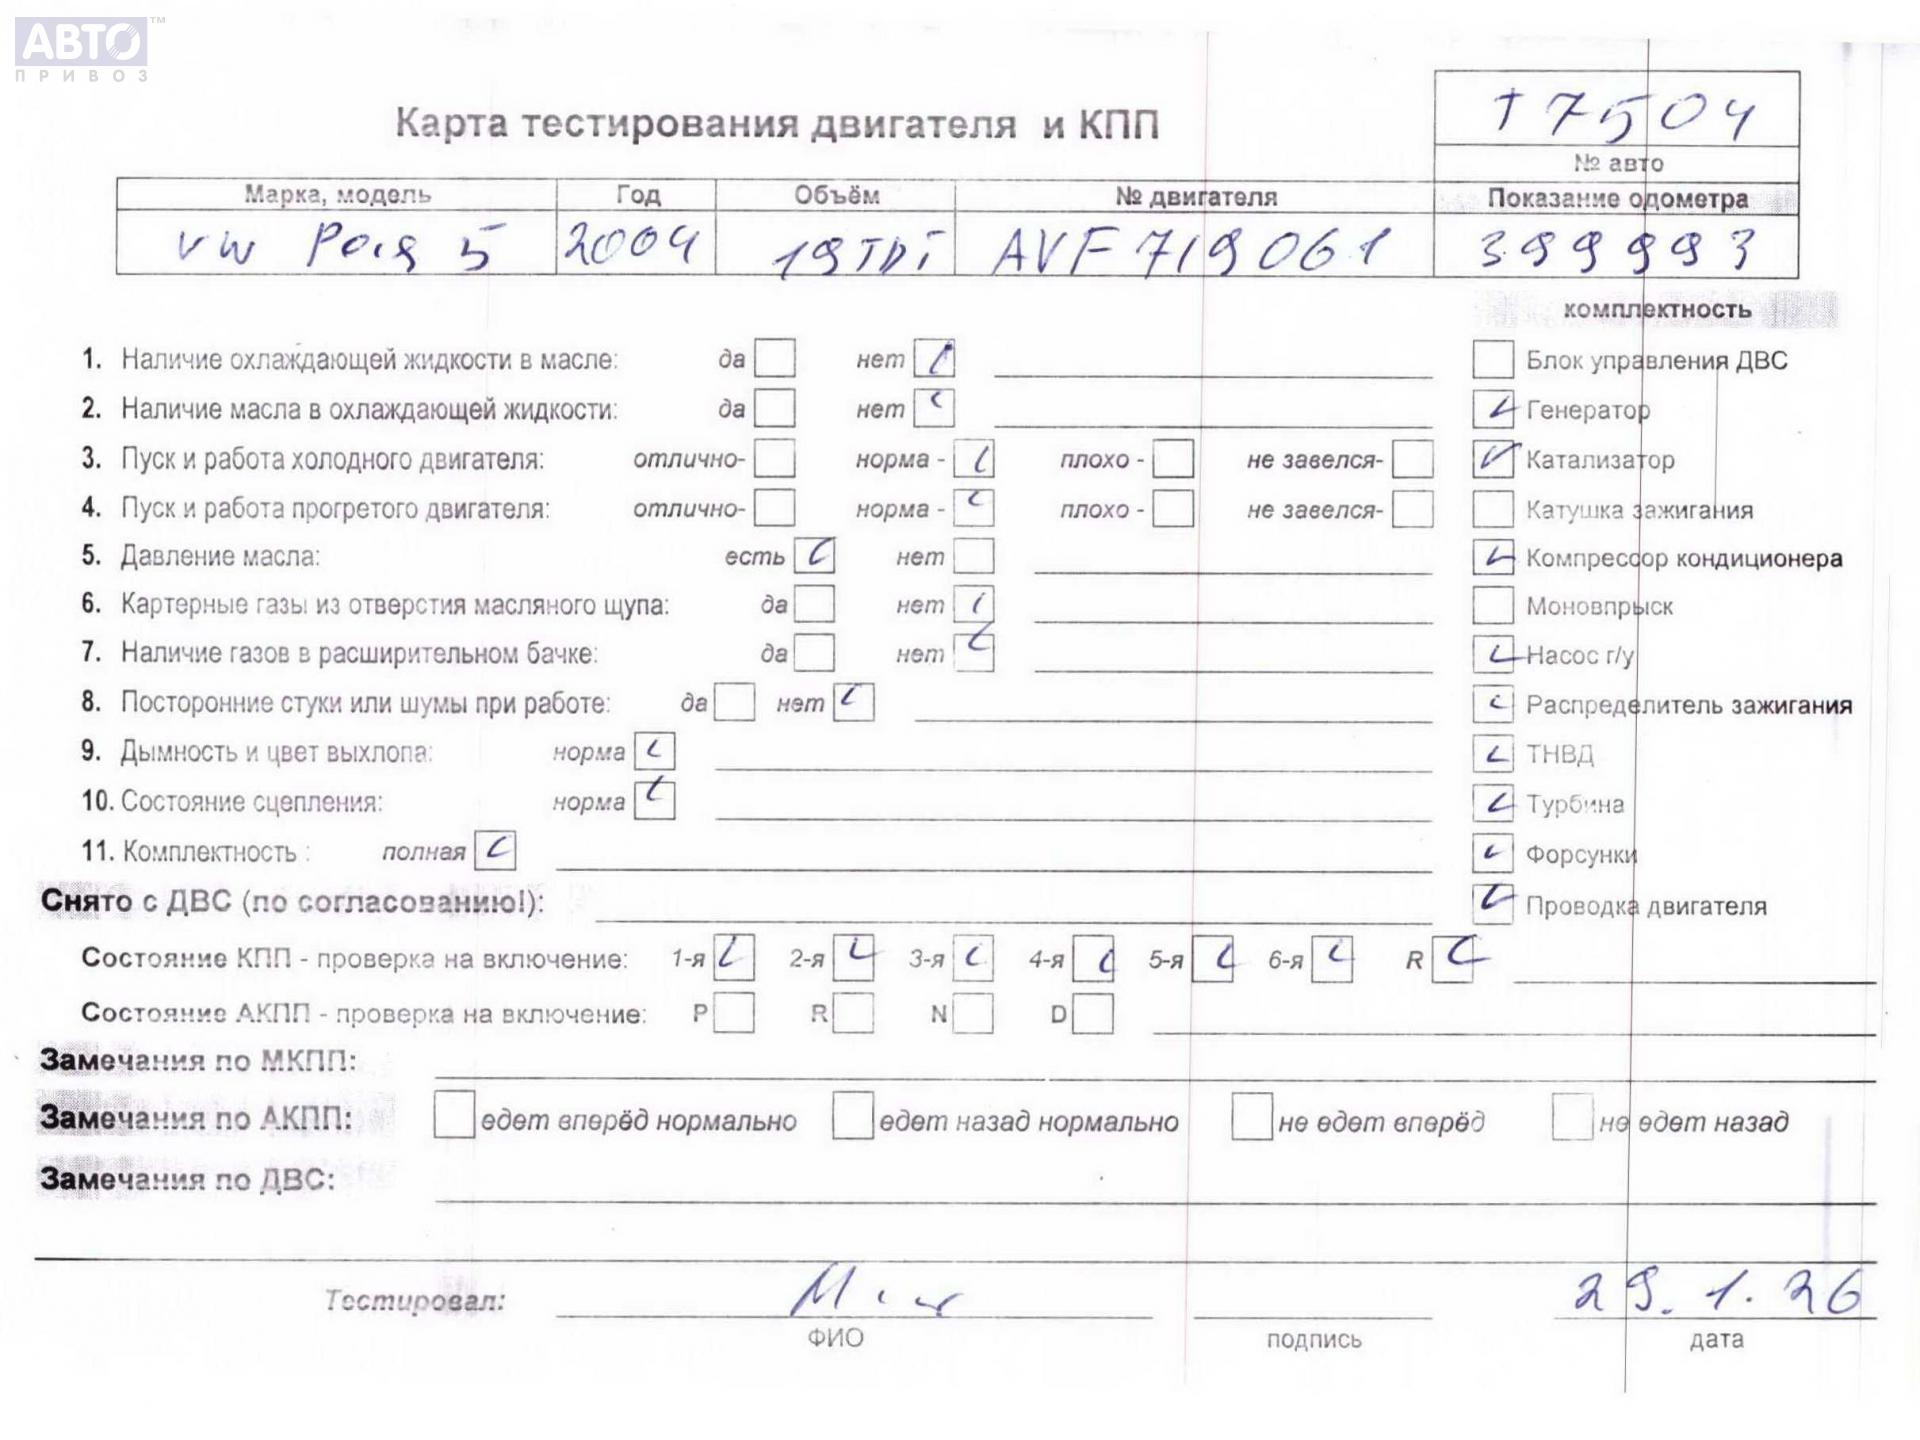 АВТО™
ПРИВОЗ
Т7504
Карта тестирования двигателя и КПП
№ авто
Марка, модель Год Объём № двигателя Показание одометра
VW 5 2004 19TDI AVF719061 399993
комплектность
1. Наличие охлаждающей жидкости в масле: да нет Блок управления ДВС
2. Наличие масла в охлаждающей жидкости: да нет Генератор
3. Пуск и работа холодного двигателя: отлично- норма - плохо - не завелся- Катализатор
4. Пуск и работа прогретого двигателя: отлично- норма - плохо - не завелся- Катушка зажигания
5. Давление масла: есть нет Компрессор кондиционера
6. Картерные газы из отверстия масляного щупа: да нет Моновпрыск
7. Наличие газов в расширительном бачке: да нет Насос г/у
8. Посторонние стуки или шумы при работе: да нет Распределитель зажигания
9. Дымность и цвет выхлопа: норма ТНВД
10. Состояние сцепления: норма Турбина
11. Комплектность : полная Форсунки
Снято с ДВС (по согласованию!): Проводка двигателя
Состояние КПП - проверка на включение: 1-я 2-я 3-я 4-я 5-я 6-я R
Состояние АКПП - проверка на включение: P R N D
Замечания по МКПП:
Замечания по АКПП: едет вперёд нормально едет назад нормально не едет вперёд не едет назад
Замечания по ДВС:
Тестировал: 29.1.26
ФИО подпись дата